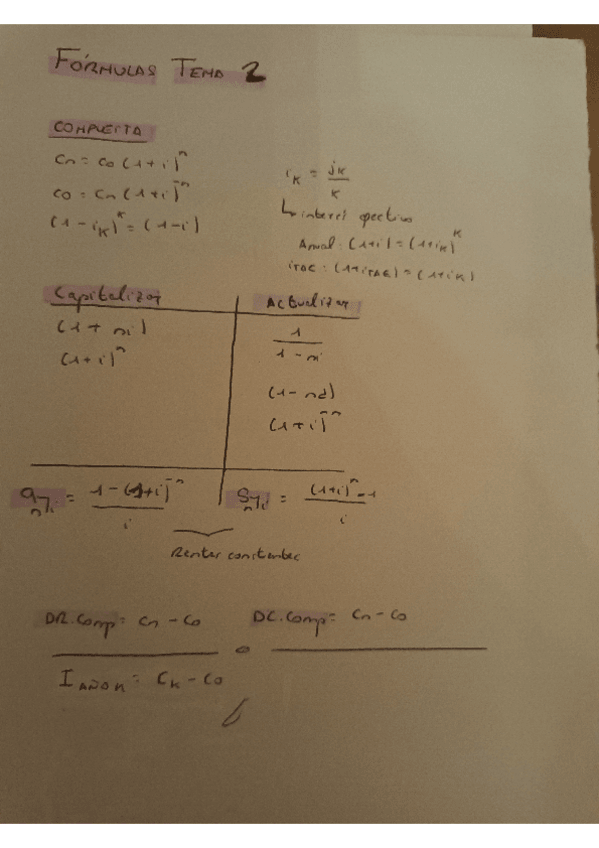 FÓRMULAS TEMA 2
COMPUESTA
Cn = Co (1+i)^n
Co = Cn (1+i)^-n
(1-iK)^K = (1-i)
iK = jK/K
↳ interés efectivo
Anual: (1+i) = (1+iK)^K
iTAE: (1+iTAE) = (1+iK)
Capitalizar
(1 + ni)
(1+i)^n
Actualizar
1/(1-ni)
(1-nd)
(1+i)^-n
a n┐i = (1-(1+i)^-n)/i
S n┐i = ((1+i)^n - 1)/i
Rentas constantes
DR.Comp = Cn - Co
DC.Comp = Cn - Co
I AÑO K = CK - Co